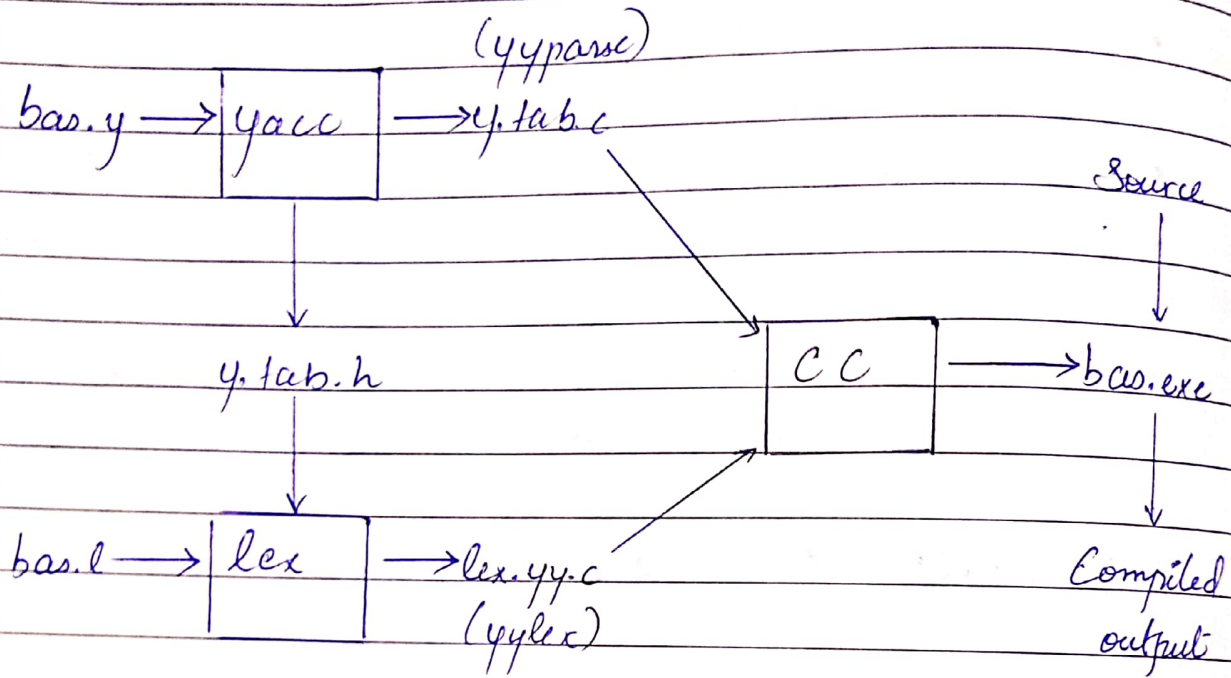 (yyparse)
bas.y → yacc → y.tab.c
Source
y.tab.h
CC → bas.exe
bas.l → lex → lex.yy.c
(yylex)
Compiled
output